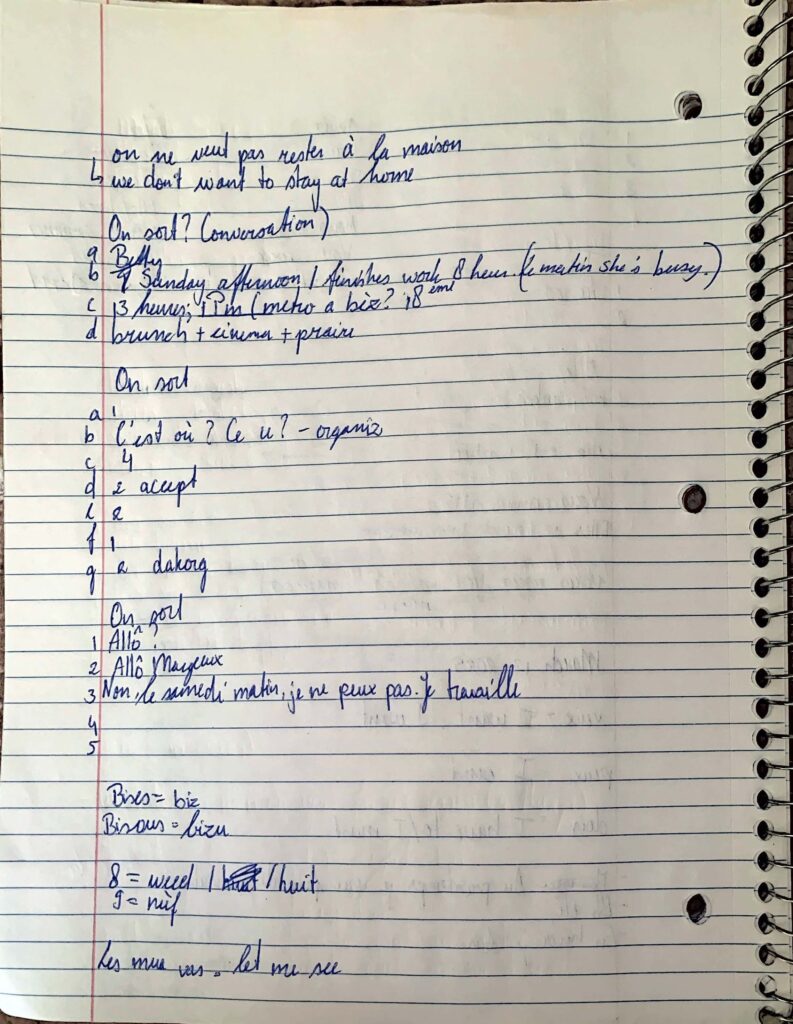 on ne veut pas rester à la maison
↳ we don't want to stay at home
On sort? (onversation)
a Betty
b 9 Sunday afternoon / finishes work 8 heur. (le matin she's busy.)
c 13 heures; 1 Pm (metro a bèz? 18 ème
d brunch + cinema + praire
On sort
a 1
b C'est où? Ce u? - organiz
c 4
d 2 accept
e 2
f 1
g a dakorg
On sort
1 Allô?
2 Allô, Margeux
3 Non, le samedi matin, je ne peux pas. Je travaille
4
5
Bises = biz
Bisous = bizu
8 = weed / / huit
9 = nuf
Les mua vas = let me see